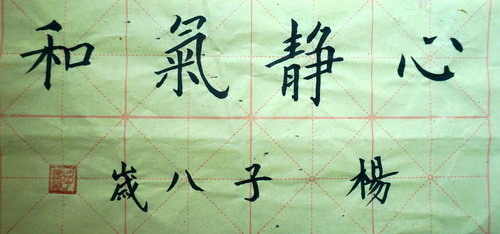 心静氣和
楊子八歲